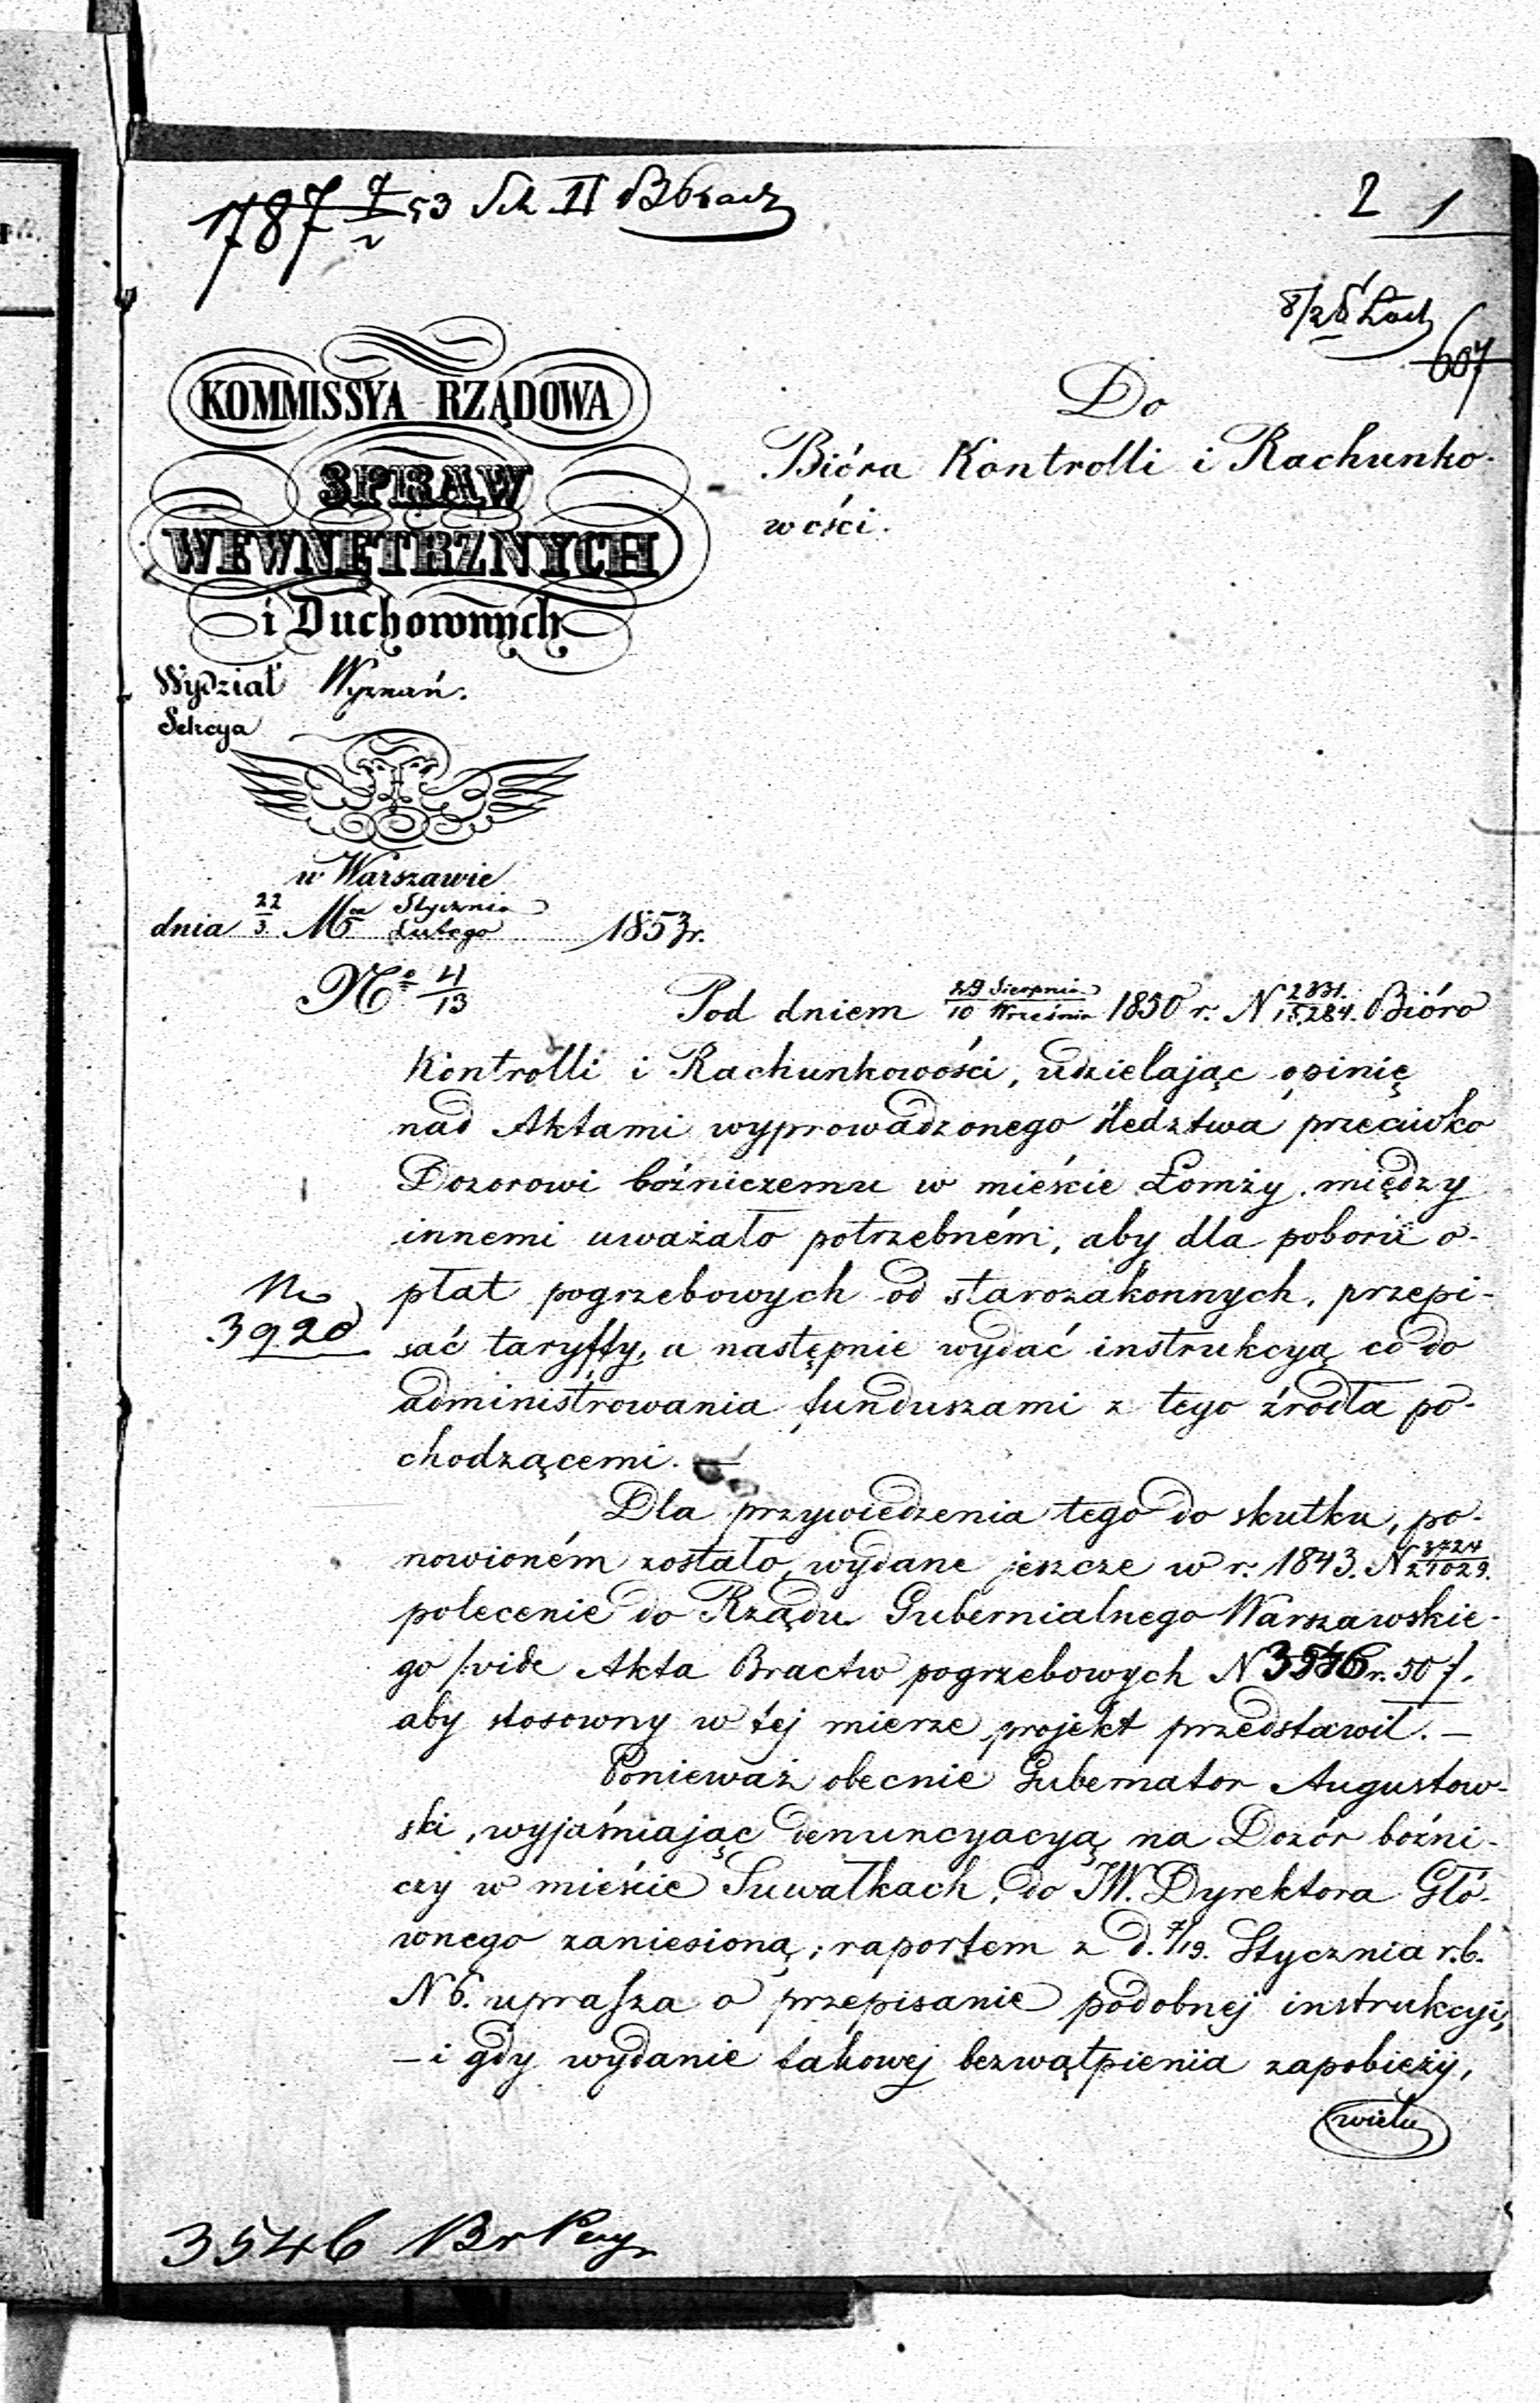 1787 53
2 1
607
KOMMISSYA RZĄDOWA
SPRAW
WEWNĘTRZNYCH
i Duchownych
Wydział Wyznań.
Sekcya
Do
Bióra Kontrolli i Rachunko-
wości.
w Warszawie
dnia 22/3 Mca Stycznia/Lutego 1853r.
No 41/13
Pod dniem 29 Sierpnia/10 Września 1850 r. N 2331./15,284. Bióro
Kontrolli i Rachunkowości, udzielając opinię
nad Aktami wyprowadzonego śledztwa przeciwko
Dozorowi bóżniczemu w mieście Łomży, między
innemi uważało potrzebném, aby dla poboru o-
płat pogrzebowych od starozakonnych, przepi-
sać taryffy, a następnie wydać instrukcyą co do
administrowania funduszami z tego źrodła po-
chodzącemi. —
3920
Dla przywiedzenia tego do skutku, po-
nowioném zostało, wydane jeszcze w r. 1843. N
polecenie do Rządu Gubernialnego Warszawskie-
go /:vide Akta Bractw pogrzebowych N 3546 r. 50/.
aby stosowny w tej mierze projekt przedstawił. —
Ponieważ obecnie Gubernator Augustow-
ski, wyjaśniając denuncyacyą na Dozór bóżni-
czy w mieście Suwałkach, do JW. Dyrektora Głó-
wnego zaniesioną, raportem z d. 7/19. Stycznia r.b.
N 6. uprasza o przepisanie podobnej instrukcyi,
— i gdy wydanie takowej bezwątpienia zapobieży,
wielu
3546